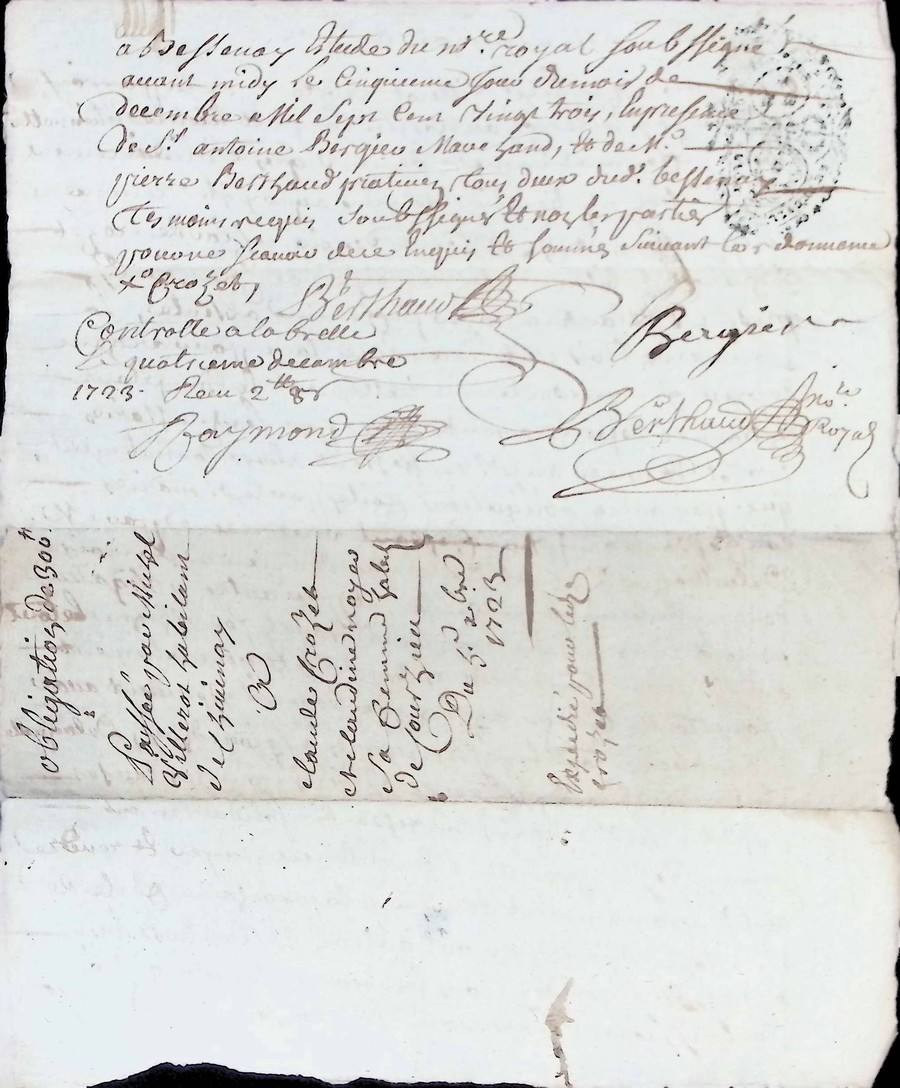 a Bessenay Etude du n.re royal soubssigné
avant midy le Cinquieme jour du mois de
decembre Mil Sept Cent Vingt trois, En presence
De S.r antoine Bergier Marchand, et de M.e
pierre Berthaud praticien tous deux dud. bessenay
tesmoins requis soubssignés et non les parties
pour ne scavoir de ce Enquis et sommés suivant l'ordonnance
Crozet,
Berthaud
Bergier
Controlle a la brelle
Le quatrieme decembre
1723. Receu 2.tt 8s
Raymond
Berthaud no.re Royal
obligation de 300.tt
Passée par Michel
Villerot habitant
de Chivinay
a
claude Crozet
et claudine noyer
Sa femme habit
de Courzieu
Du 5.e xbre
1723
Expedié pour led
crozet